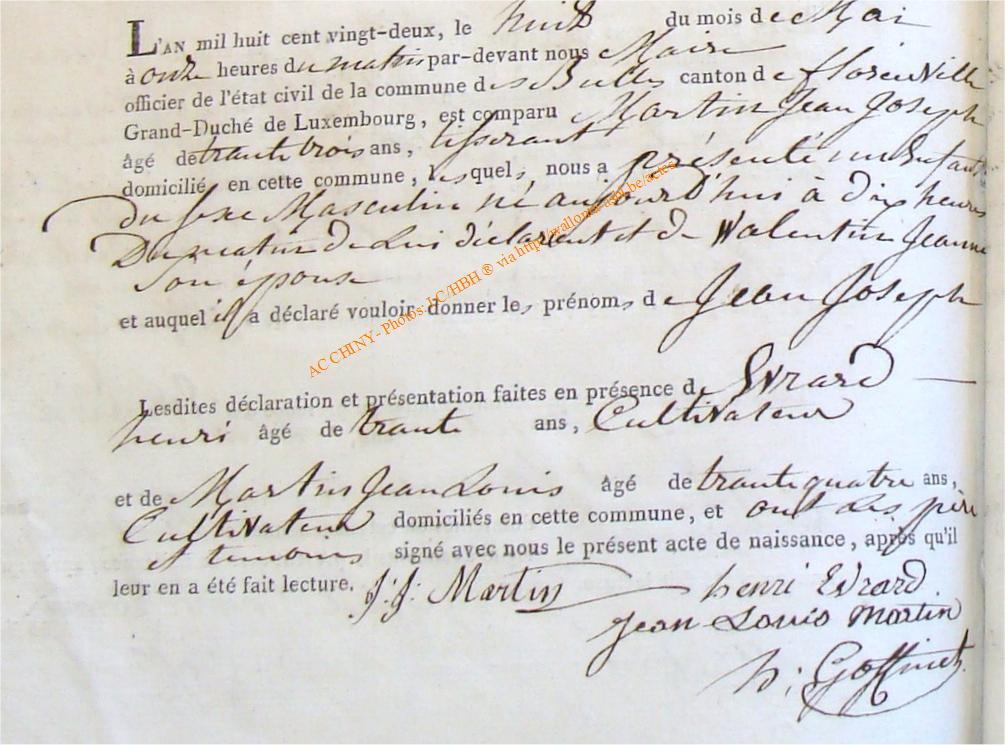 L'AN mil huit cent vingt-deux, le huit du mois de Mai
à onze heures du matin par-devant nous Maire
officier de l'état civil de la commune des Bulles canton de florenville
Grand-Duché de Luxembourg, est comparu Martin Jean Joseph
âgé de trante trois ans, tisserant
domicilié en cette commune, lesquels nous a présenté un Enfant
du sexe Masculin né aujourd'hui à dix heures
Du matin de Lui déclarant et de Walentin Jeanne
son épouse
et auquel il a déclaré vouloir donner les prénoms de Jean Joseph
AC CHINY - Photos: LC/HBH ® via http://wallonia-asbl.be/actes
Lesdites déclaration et présentation faites en présence de Evrard
henri âgé de trante ans, Cultivateur
et de Martin Jean Louis âgé de trante quatre ans,
Cultivateur domiciliés en cette commune, et ont les père
et temoins signé avec nous le présent acte de naissance, après qu'il
leur en a été fait lecture. J:J: Martin henri Evrard
Jean Louis Martin
h: Goffinet